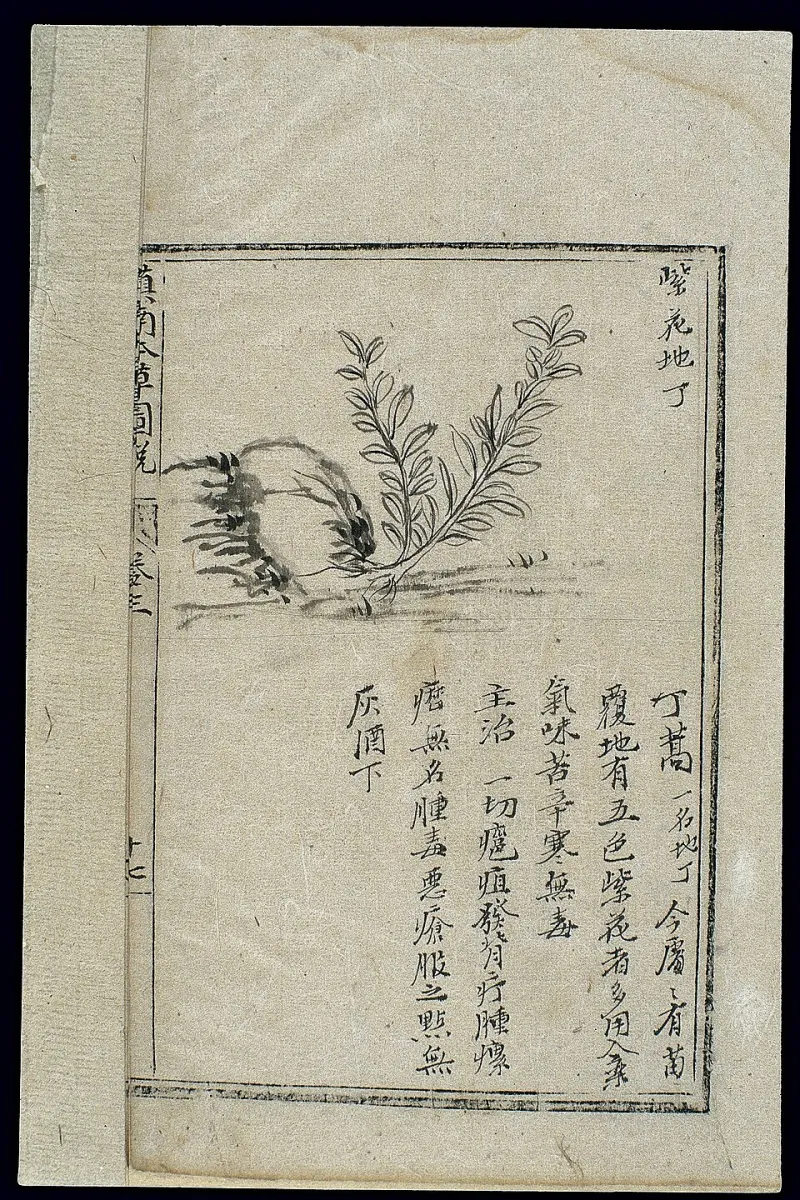 紫花地丁
丁蒿 一名地丁 今處〻有苗
覆地有五色紫花者多用入藥
氣味苦辛寒無毒
主治 一切癰疽發背疔腫瘰
癧無名腫毒惡瘡服之點無
灰酒下
滇南本草圖說
卷三
十七